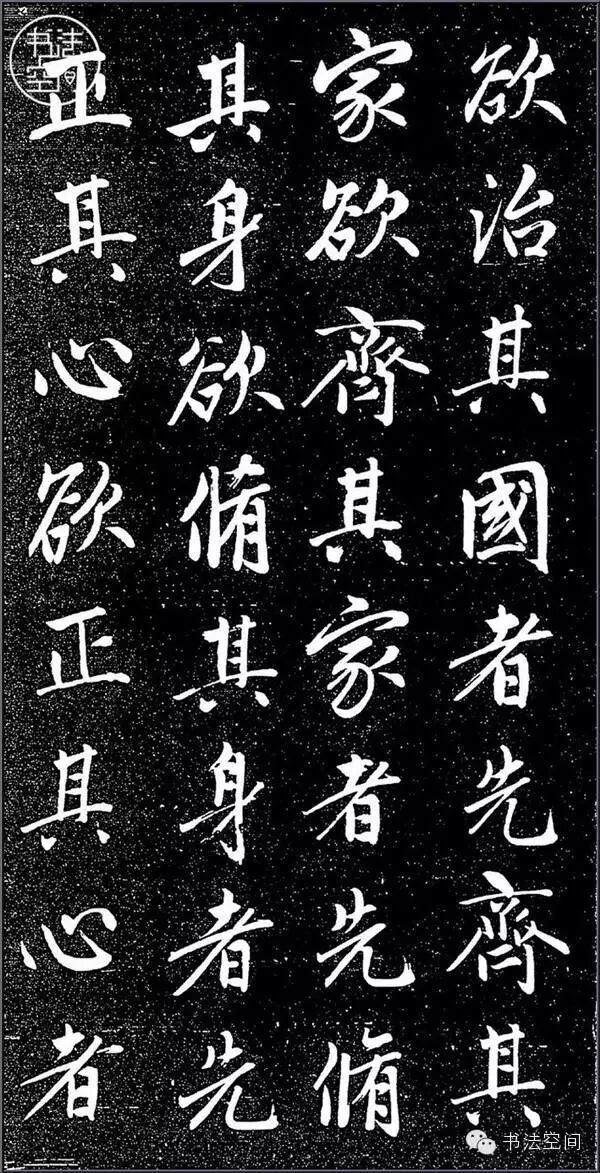 欲治其國者先齊其
家欲齊其家者先脩
其身欲脩其身者先
正其心欲正其心者
书法空间
书法空间